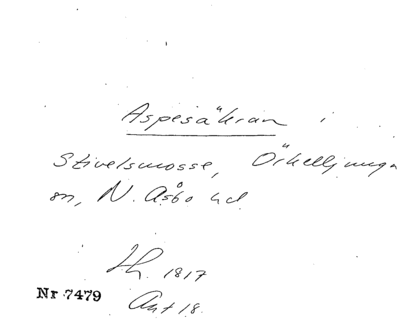 Aspesåkran i
Stivelsmosse, Örkelljunga
sn, N. Åsbo hd
Th. 1817
Akt 18.
Nr 7479